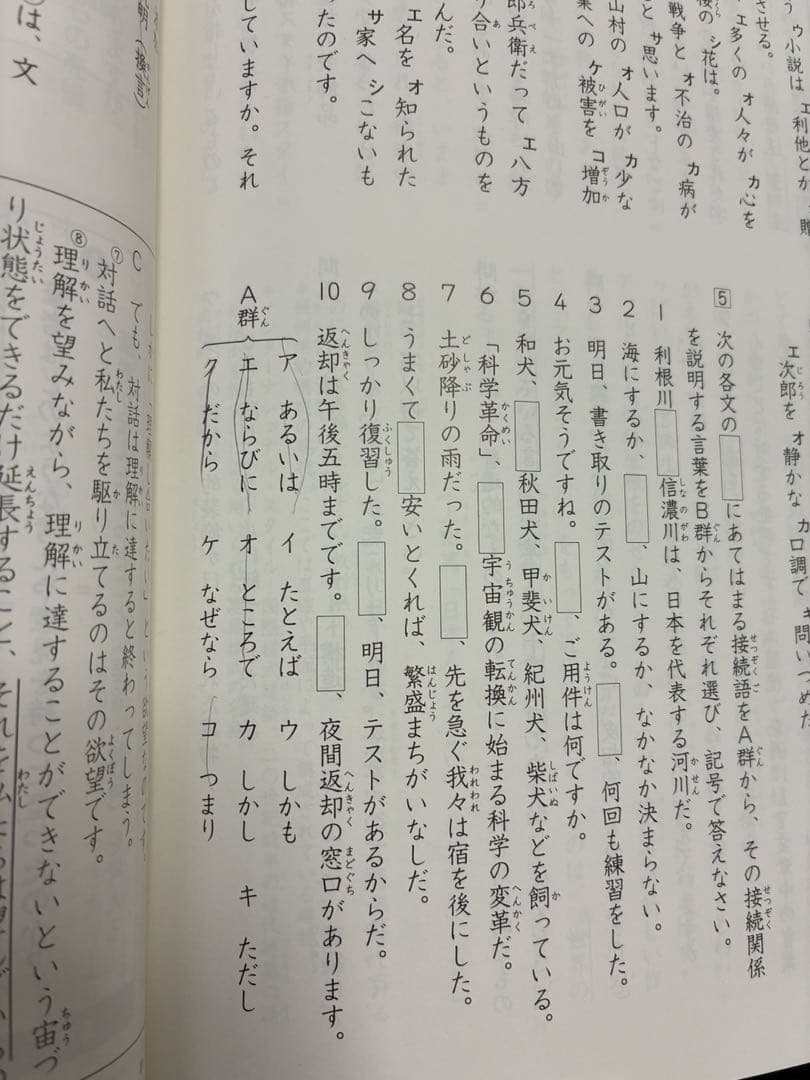 う ゥ小説は ェ利他とか 贈
させる。
ェ多くの ォ人々が ヵ心を
の シ花は。
戦争と ォ不治の ヵ病が
と サ思います。
山村の ォ人口が ヵ少な
業への ケ被害を コ増加
郎兵衛だって ェ八方
り合いというものを
んだ。
ェ名を ォ知られた
サ家へ シこないも
ったのです。
していますか。それ
ェ次郎を ォ静かな ヵ口調で キ問いつめた
5 次の各文の□にあてはまる接続語をA群から、その接続関係
を説明する言葉をB群からそれぞれ選び、記号で答えなさい。
1 利根川□信濃川は、日本を代表する河川だ。
2 海にするか、□、山にするか、なかなか決まらない。
3 明日、書き取りのテストがある。□、何回も練習をした。
4 お元気そうですね。□、ご用件は何ですか。
5 和犬、□秋田犬、甲斐犬、紀州犬、柴犬などを飼っている。
6 「科学革命」、□宇宙観の転換に始まる科学の変革だ。
7 土砂降りの雨だった。□、先を急ぐ我々は宿を後にした。
8 うまくて□安いとくれば、繁盛まちがいなしだ。
9 しっかり復習した。□、明日、テストがあるからだ。
10 返却は午後五時までです。□、夜間返却の窓口があります。
A群
ア あるいは イ たとえば ウ しかも
エ ならびに オ ところで カ しかし キ ただし
ク だから ケ なぜなら コ つまり
は、文
C でも、対話は理解に達すると終わってしまう。
⑦対話へと私たちを駆り立てるのはその欲望です。
⑧理解を望みながら、理解に達することができないという宙づ
り状態をできるだけ延長すること、